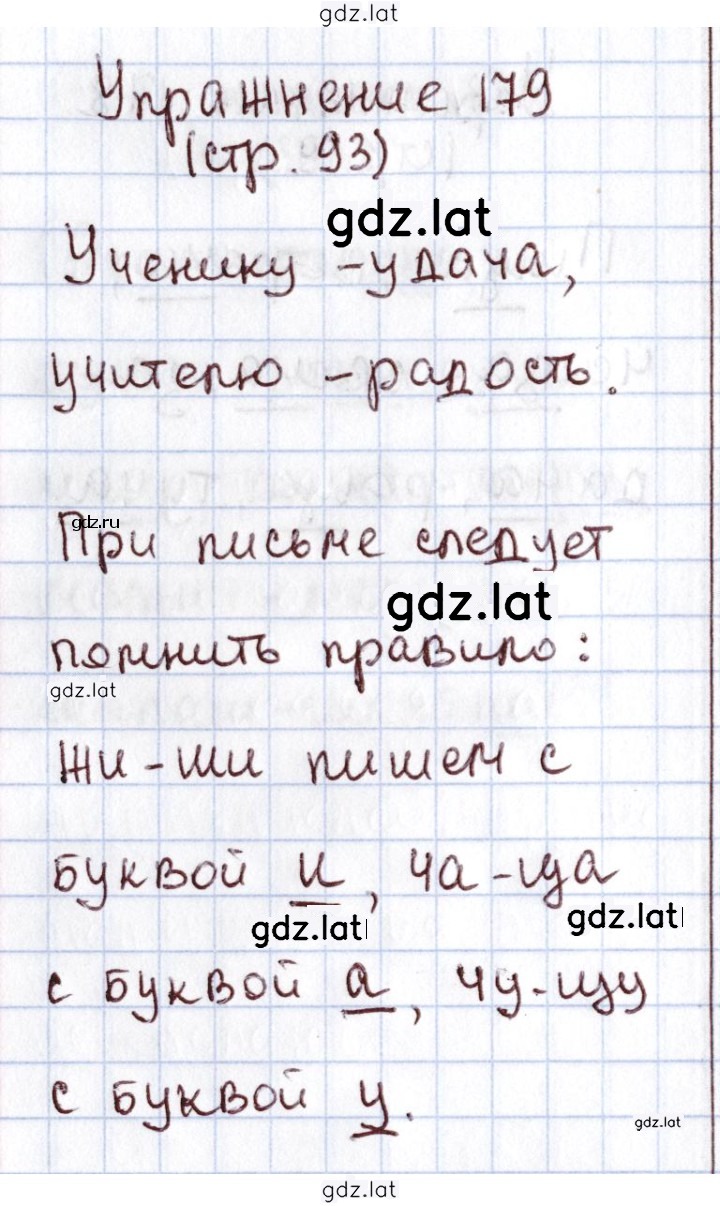 gdz.lat
Упражнение 179
(стр. 93)
gdz.lat
Ученику - удача,
учителю - радость.
gdz.ru
При письме следует
gdz.lat
помнить правило:
gdz.lat
жи - ши пишем с
буквой и, ча - ща
gdz.lat gdz.lat
с буквой а, чу - щу
с буквой у.
gdz.lat
gdz.lat